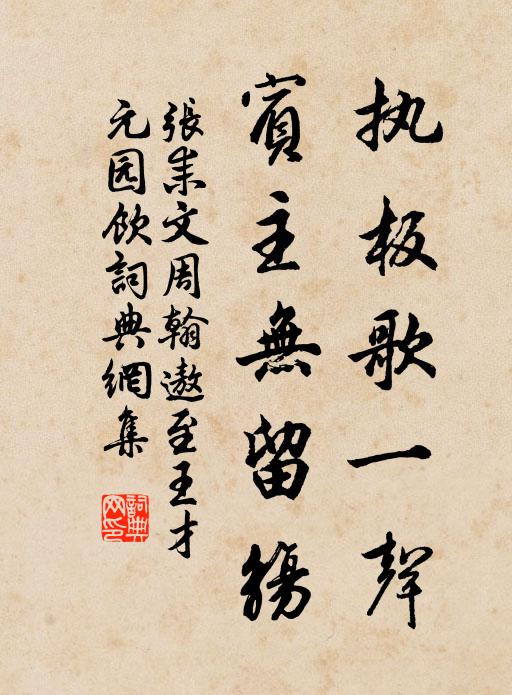 执板歌一聲
賓主無留觴
張耒文周翰邀至王才
元园飲詞典網集
詞典網印